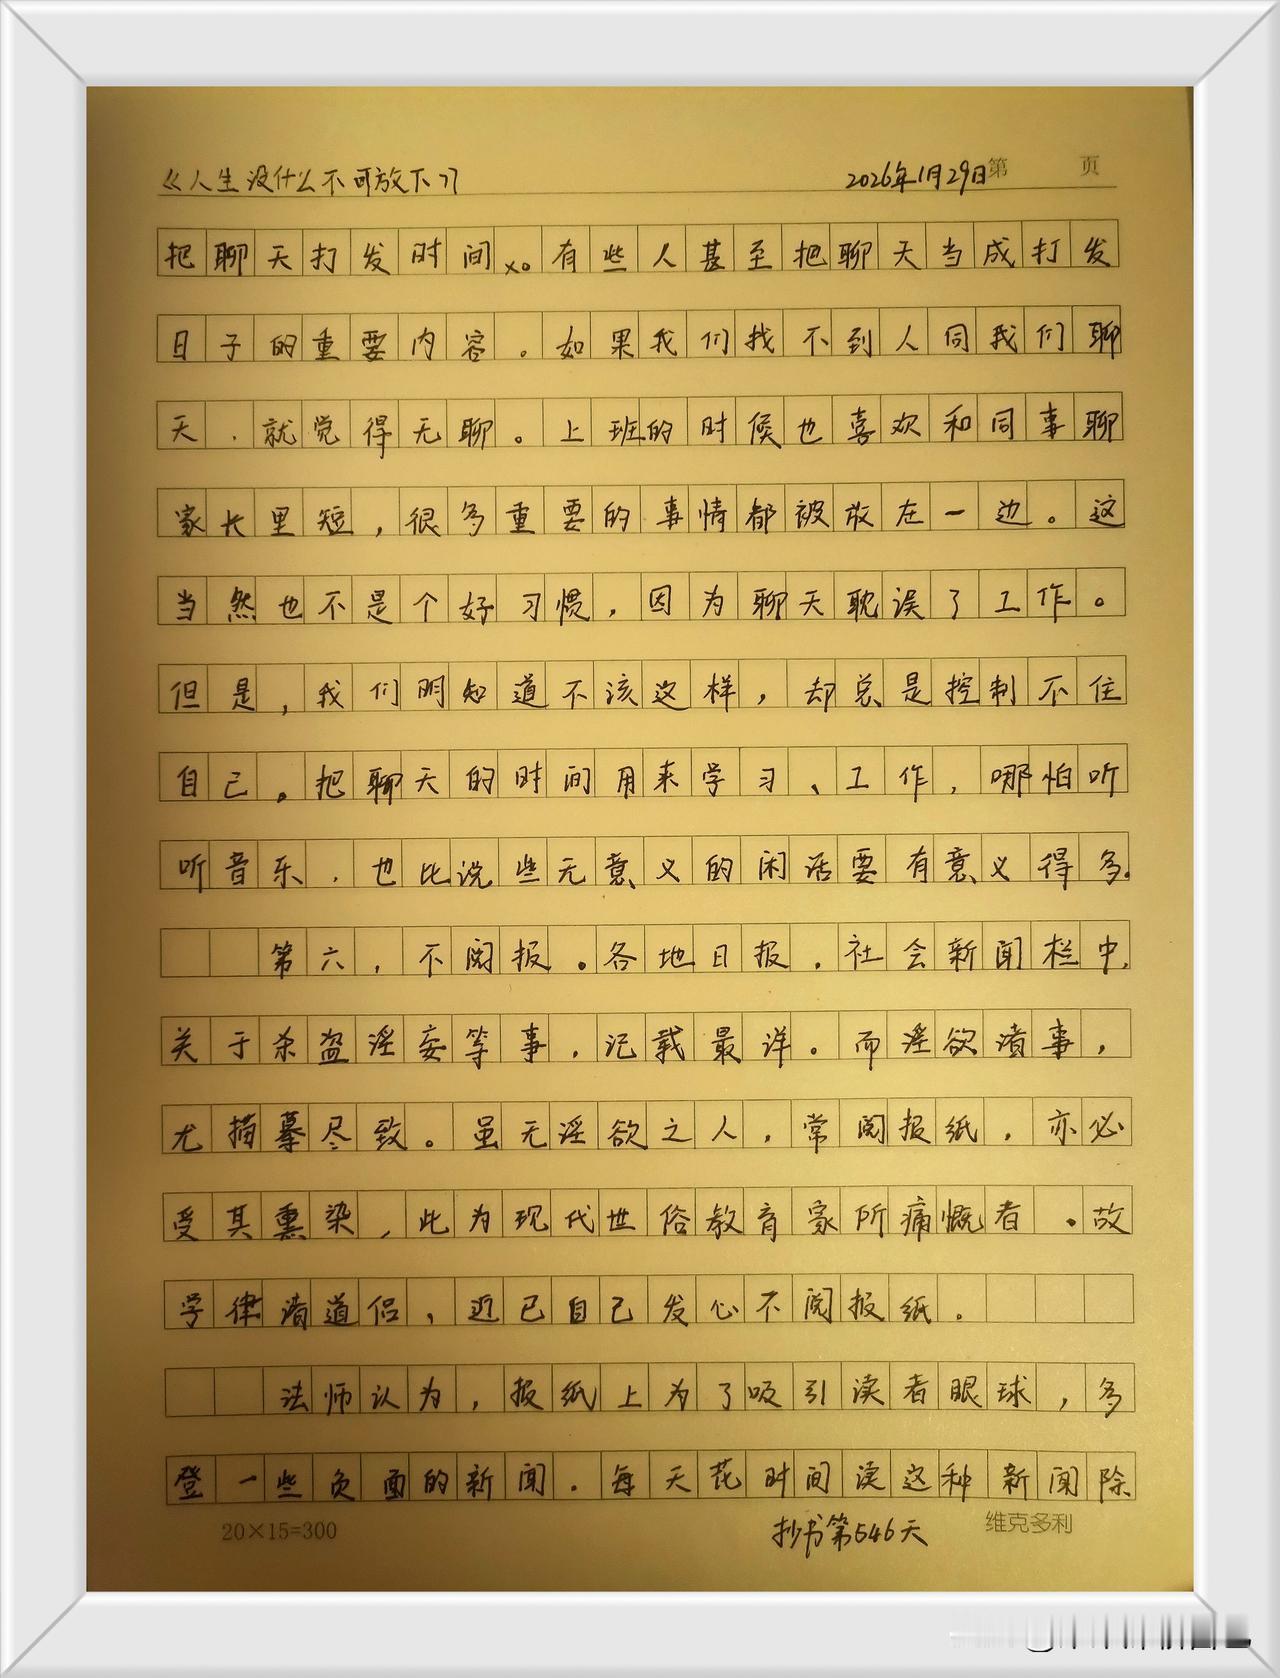 《人生没什么不可放下》 2026年1月29日 第 页
把聊天打发时间。有些人甚至把聊天当成打发
日子的重要内容。如果我们找不到人同我们聊
天,就觉得无聊。上班的时候也喜欢和同事聊
家长里短,很多重要的事情都被放在一边。这
当然也不是个好习惯,因为聊天耽误了工作。
但是,我们明知道不该这样,却总是控制不住
自己。把聊天的时间用来学习、工作,哪怕听
听音乐,也比说些无意义的闲话要有意义得多.
第六,不阅报。各地日报,社会新闻栏中,
关于杀盗淫妄等事,记载最详。而淫欲诸事,
尤描摹尽致。虽无淫欲之人,常阅报纸,亦必
受其熏染,此为现代世俗教育家所痛慨者。故
学律诸道侣,近已自己发心不阅报纸。
法师认为,报纸上为了吸引读者眼球,多
登一些负面的新闻.每天花时间读这种新闻除
20×15=300 抄书第546天 维克多利